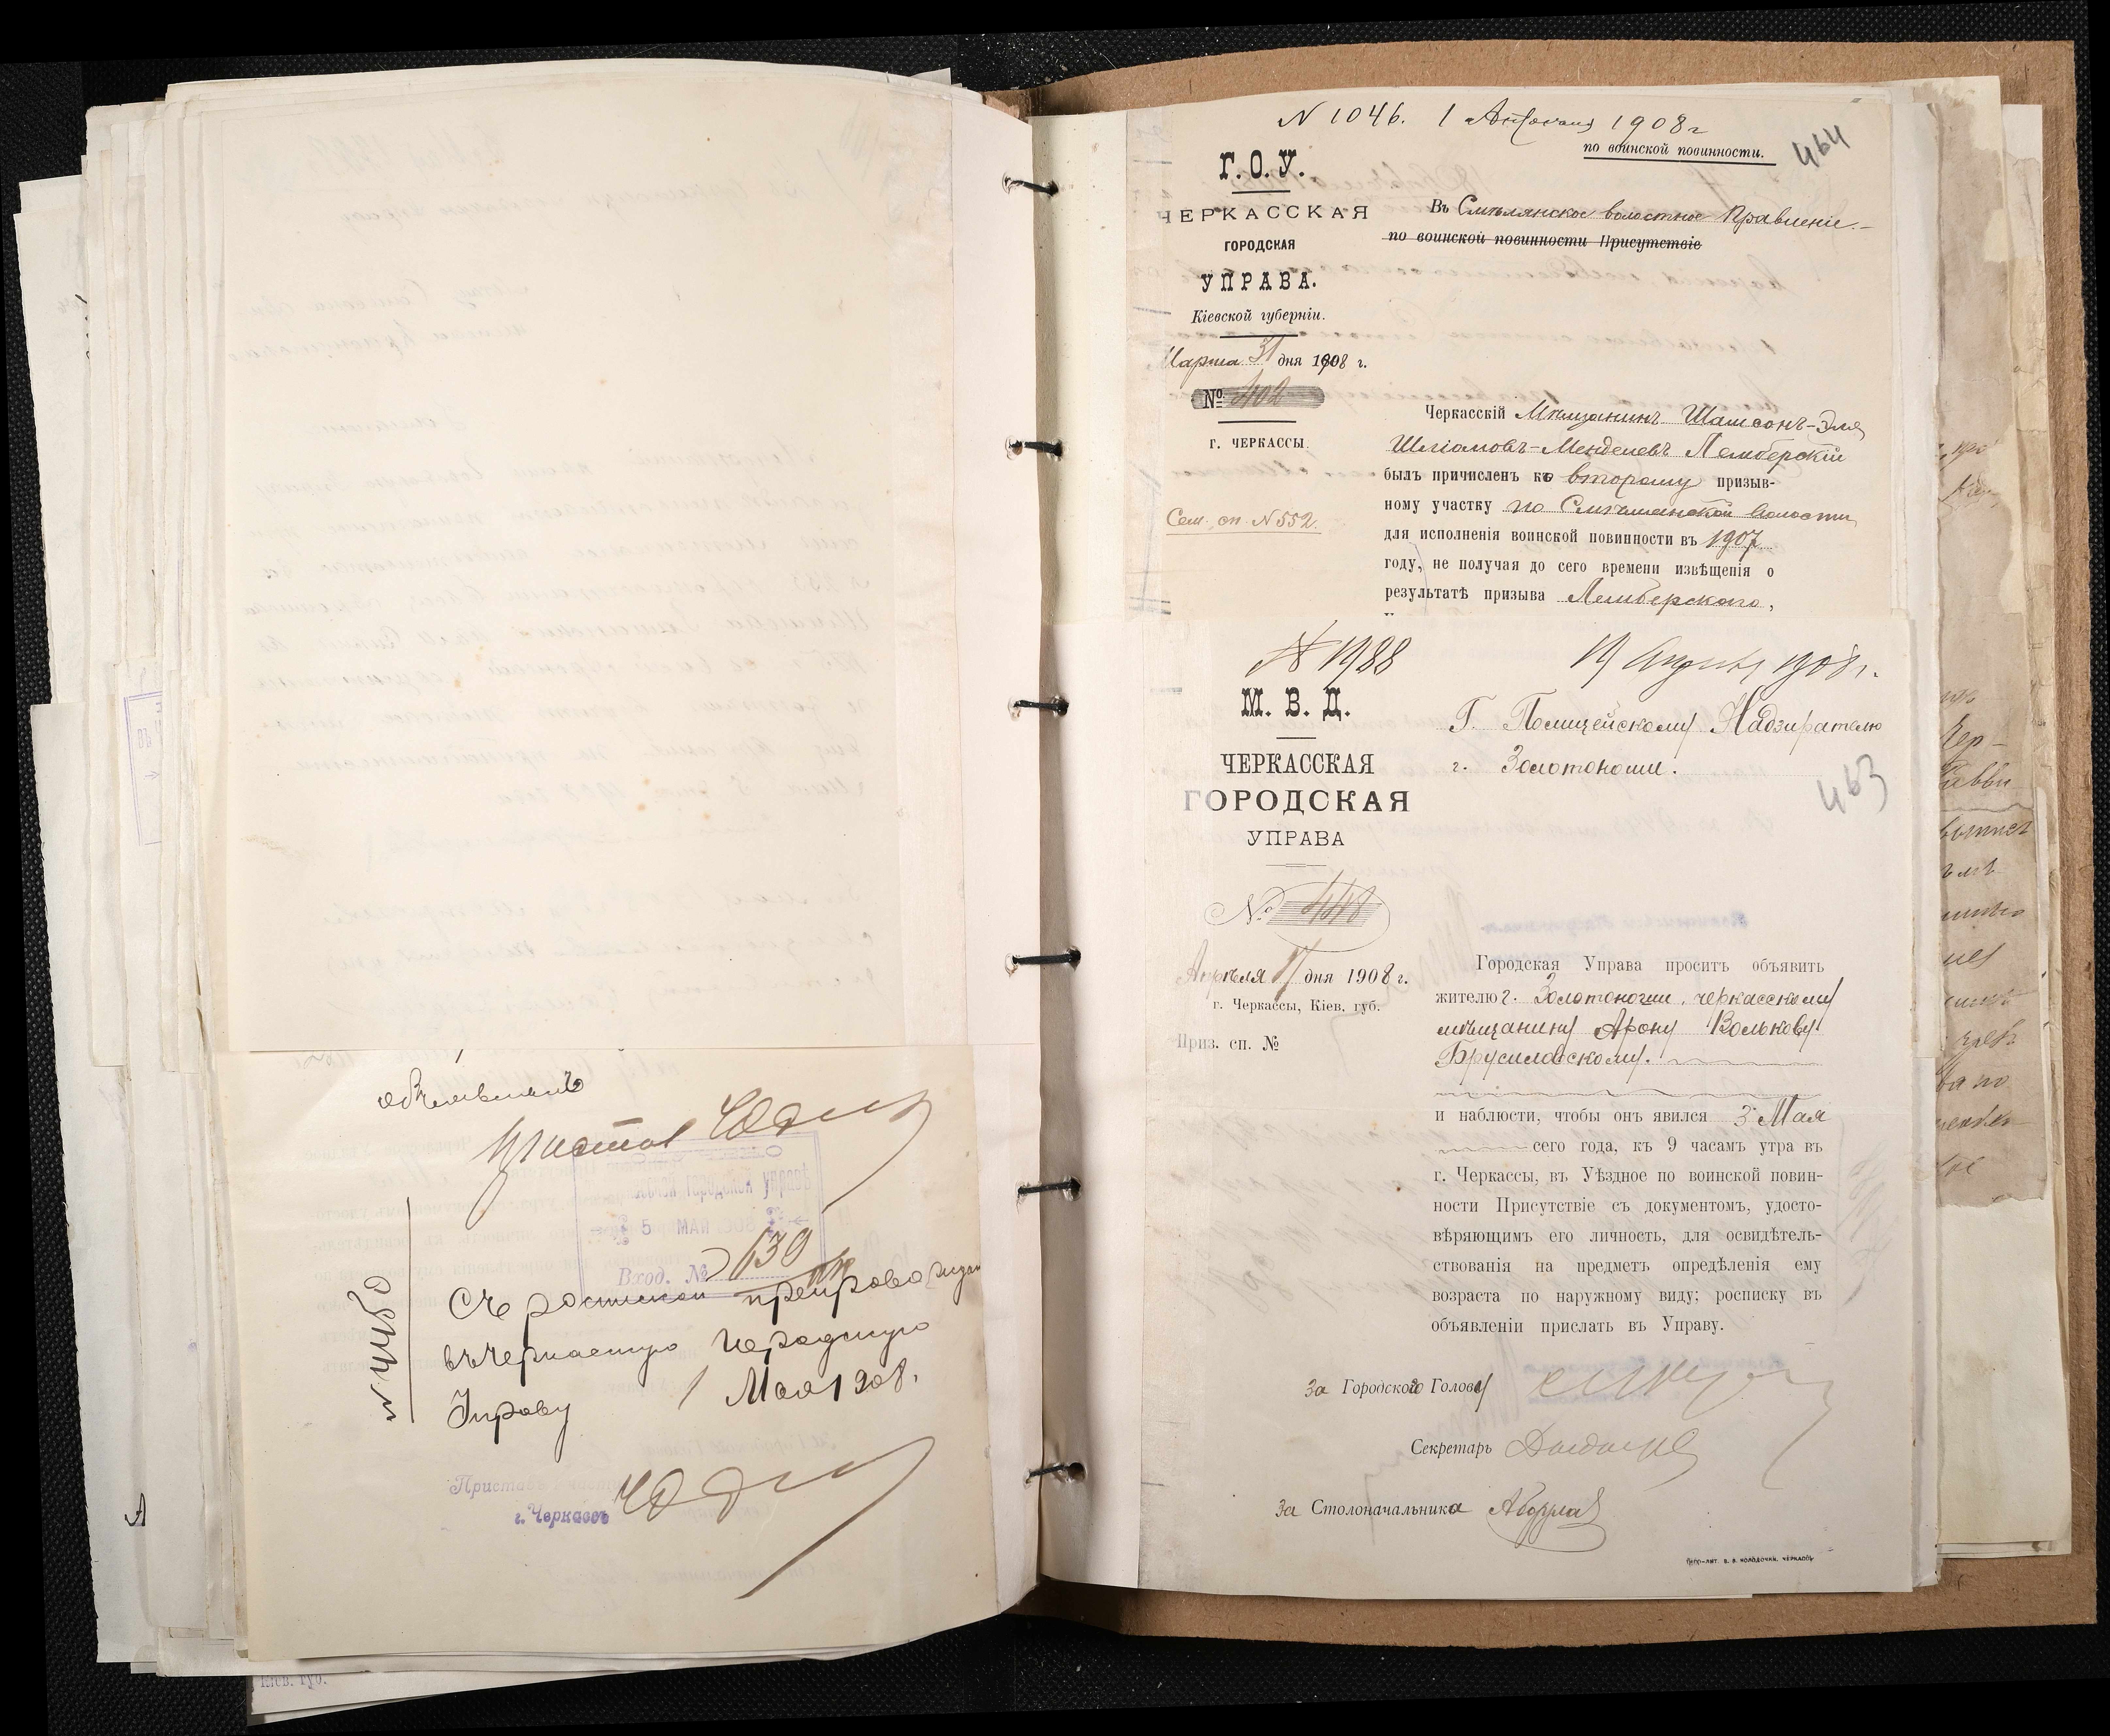 объявилъ
Приставъ
5 МАЙ 1908
Вход. № 130
Съ роспиской препровождаю
въ Черкасскую Городскую
Управу 1 Мая 1908.
№ 4460
Приставъ 1 части
г. Черкассъ
А
Кіев. губ.
N 1046. 1 Апрѣля 1908 г
по воинской повинности.
464
Г. О. У.
ЧЕРКАССКАЯ
ГОРОДСКАЯ
УПРАВА.
Кіевской губерніи.
Марта 31 дня 1908 г.
№ 402
г. ЧЕРКАССЫ.
Сем. сп. N 552.
Въ Смѣлянское волостное Правленіе.
по воинской повинности Присутствіе
Черкасскій Мѣщанинъ Шамсонъ-Эля
Шліомовъ-Менделевъ Лемберскій
былъ причисленъ ко второму призыв-
ному участку по Смѣлянской волости
для исполненія воинской повинности въ 1907
году, не получая до сего времени извѣщенія о
результатѣ призыва Лемберского,
№ 1988 19 Апрѣля 1908 г.
М. В. Д.
ЧЕРКАССКАЯ
ГОРОДСКАЯ
УПРАВА
№ 448
Апрѣля 17 дня 1908 г.
г. Черкассы, Кіев. губ.
Приз. сп. №
Г. Полицейскому Надзирателю
г. Золотоноши.
463
Городская Управа проситъ объявить
жителю г. Золотоноши, черкасскому
мѣщанину Арону Волькову
Брусиловскому.
и наблюсти, чтобы онъ явился 3 Мая
сего года, къ 9 часамъ утра въ
г. Черкассы, въ Уѣздное по воинской повин-
ности Присутствіе съ документомъ, удосто-
вѣряющимъ его личность, для освидѣтель-
ствованія на предметъ опредѣленія ему
возраста по наружному виду; росписку въ
объявленіи прислать въ Управу.
За Городского Голову
Секретарь
За Столоначальника
Типо-лит. В. В. Колодочки, Черкассы